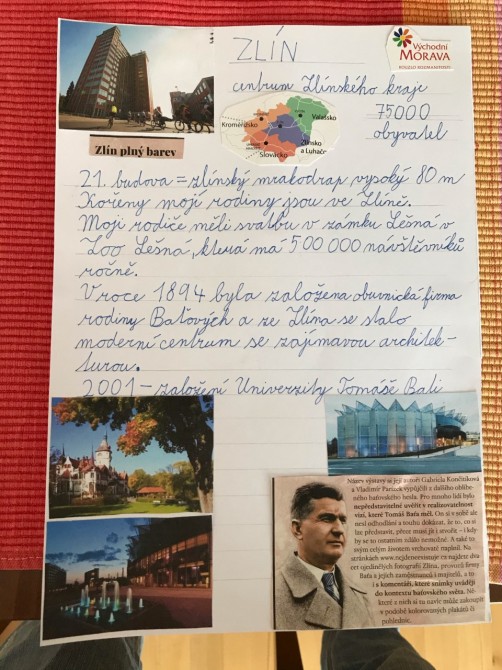 ZLÍN
Východní
MORAVA
centrum Zlínského kraje
75000
obyvatel
Kroměřížsko
Valašsko
Zlínsko
a Luhačov
Slovácko
Zlín plný barev
21. budova = zlínský mrakodrap vysoký 80 m
Kořeny mojí rodiny jsou ve Zlíně.
Moji rodiče měli svatbu v zámku Lešná v
Zoo Lešná, která má 500 000 návštěvníků
ročně.
V roce 1894 byla založena obuvnická firma
rodiny Baťových a ze Zlína se stalo
moderní centrum se zajímavou architek-
turou.
2001 – založení Univerzity Tomáše Bati
Název výstavy si její autoři Gabriela Končitíková
a Vladimír vypůjčili z dalšího oblíbe-
ného baťovského hesla. Pro mnoho lidí bylo
nepředstavitelné uvěřit v realizovatelnost
vizí, které Tomáš Baťa měl. On si v sobě ale
nesl odhodlání a touhu dokázat, že to, co si
lze představit, přece musí jít i stvořit – i kdy-
by se to ostatním zdálo nemožné. A také to
svým celým životem vrchovatě naplnil. Na
stránkách najdete
cet ojedinělých fotografií Zlína, provozů firmy
Baťa a jejich zaměstnanců i majitelů, a to
i s komentáři, které snímky uvádějí
do kontextu baťovského světa. Ně-
které z nich si tu navíc může zakoupit
v podobě kolorovaných plakátů či
pohlednic.